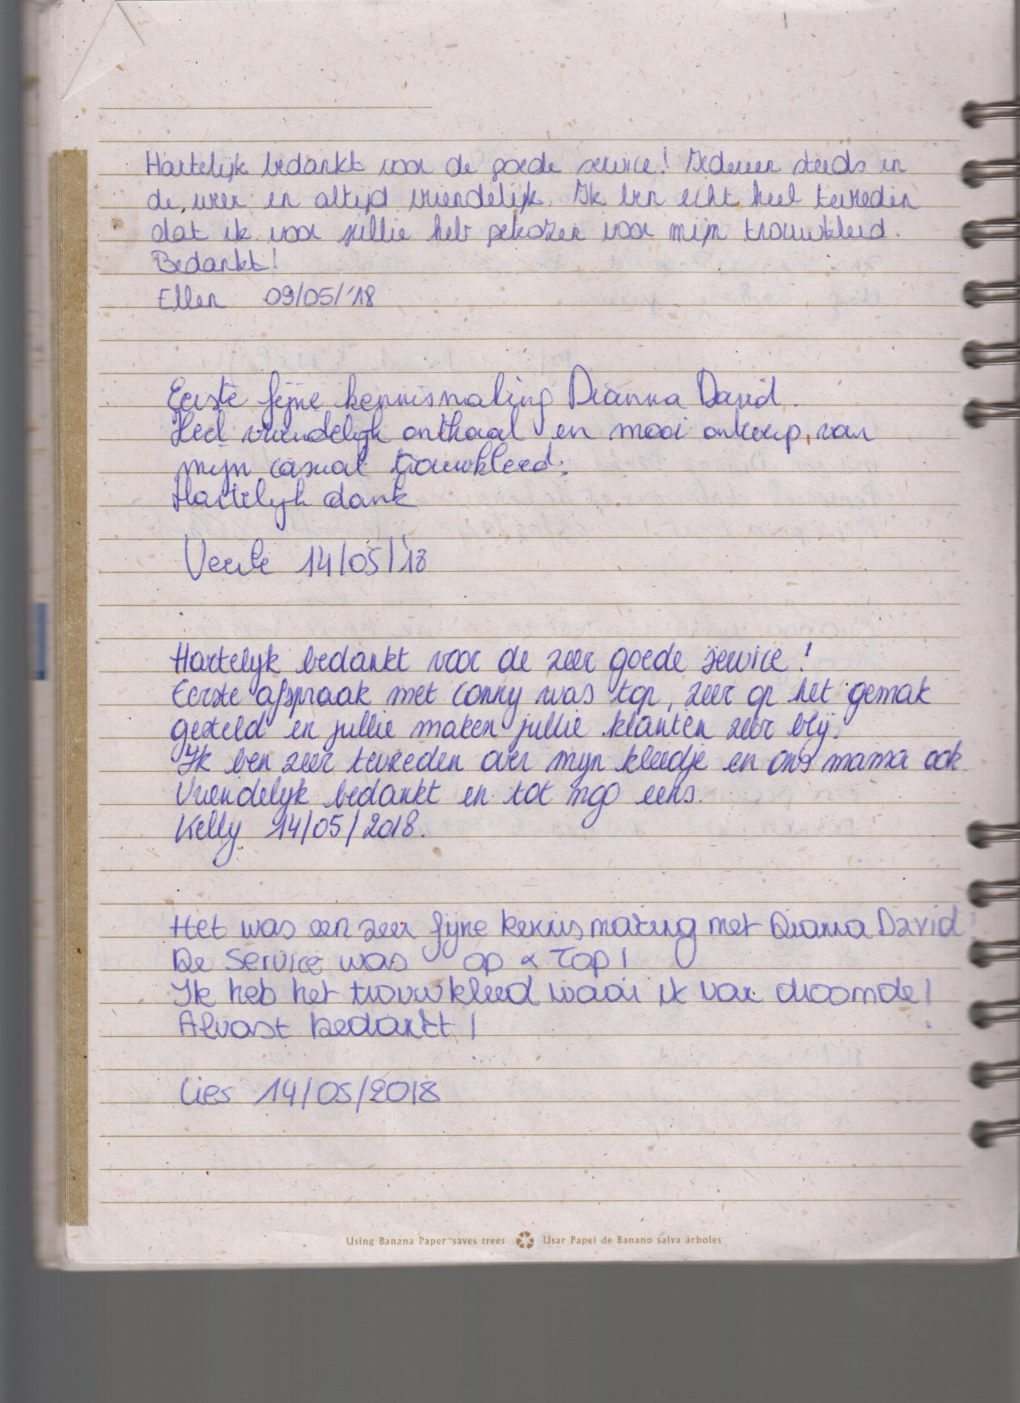 Hartelijk bedankt voor de goede service! Iedereen steeds in
de weer en altijd vriendelijk. Ik ben echt heel tevreden
dat ik voor jullie heb gekozen voor mijn trouwkleid.
Bedankt!
Ellen 09/05/'18
Eerste fijne kennismaking Dianna David.
Heel vriendelijk onthaal en mooi ontwerp van
mijn casual trouwkleed.
Hartelijk dank
Veerle 14/05/'18
Hartelijk bedankt voor de zeer goede service!
Eerste afspraak met Conny was top, zeer op het gemak
gesteld en jullie maken jullie klanten zeer blij.
Ik ben zeer tevreden over mijn kleedje en ons mama ook.
Vriendelijk bedankt en tot nog eens.
Kelly 14/05/2018.
Het was een zeer fijne kennismaking met Diana David!
De Service was op & Top!
Ik heb het trouwkleed waar ik van droomde!
Alvast bedankt!
Lies 14/05/2018
Using Banana Paper saves trees Usar Papel de Banano salva árboles